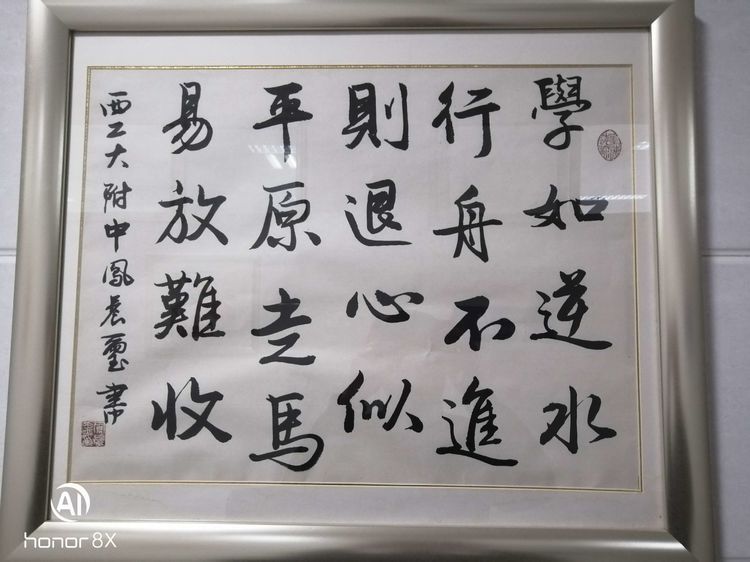 學如逆水
行舟不進
則退心似
平原走馬
易放難收
西工大附中鳳晨璽書
AI
honor 8X